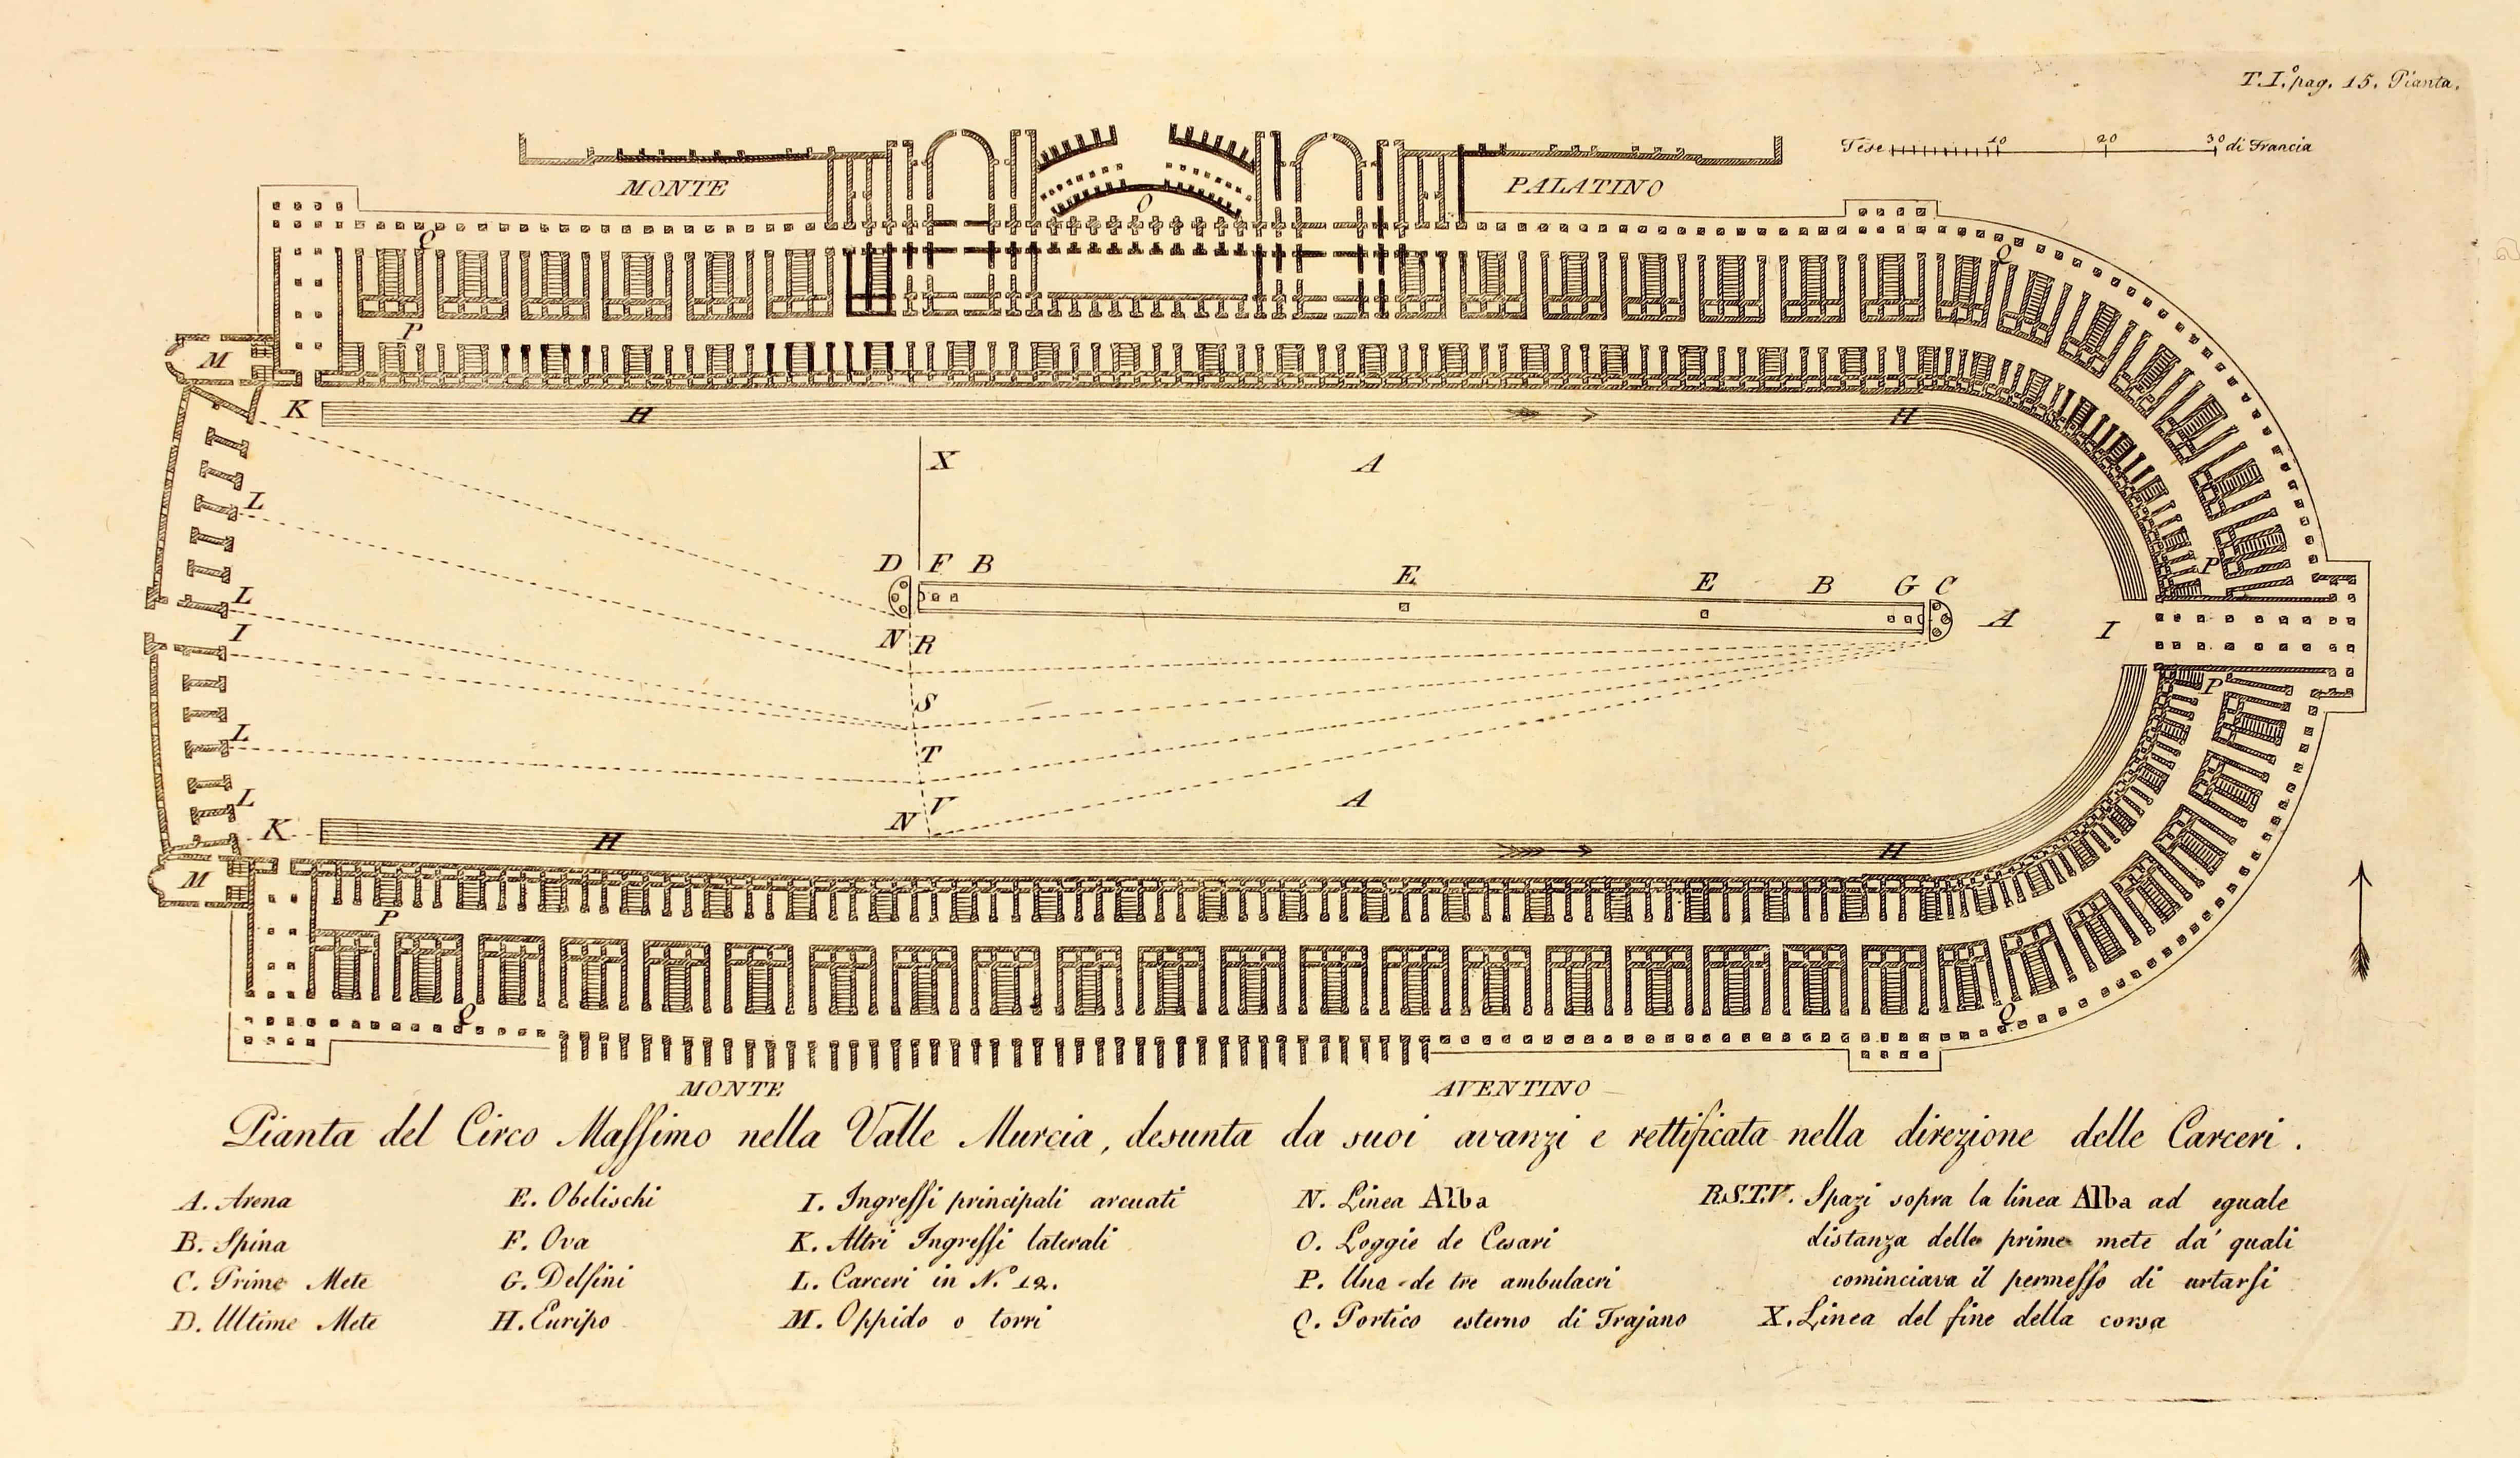 T.I.° pag. 15. Pianta.
Tese 10 20 30 di Francia
MONTE PALATINO
O
Q Q
P
M
K H H
X A
L
D F B E E B G C
L A
I N R I
P
S P
L T
L V A
N
K H H
M
P
Q Q
MONTE AVENTINO
Pianta del Circo Maſsimo nella Valle Murcia, desunta da suoi avanzi e rettificata nella direzione delle Carceri.
A. Arena
B. Spina
C. Prime Mete
D. Ultime Mete
E. Obelischi
F. Ova
G. Delfini
H. Euripo
I. Ingreſsi principali arcuati
K. Altri Ingreſsi laterali
L. Carceri in N.° 12.
M. Oppido o torri
N. Linea Alba
O. Loggie de Cesari
P. Uno de tre ambulacri
Q. Portico esterno di Trajano
R.S.T.V. Spazi sopra la linea Alba ad eguale
distanza delle prime mete da' quali
cominciava il permeſso di urtarsi
X. Linea del fine della corsa